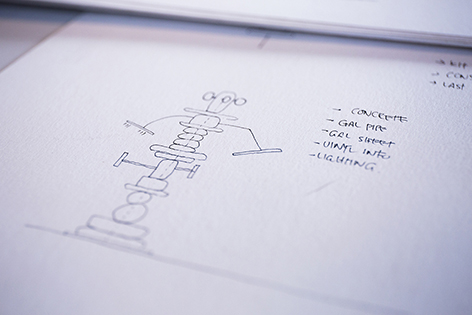 → CONCRETE
→ GAL PIPE
→ GAL SHEET
→ VINYL INTO
→ LIGHTING
→ KIT
→ CON
→ LAST